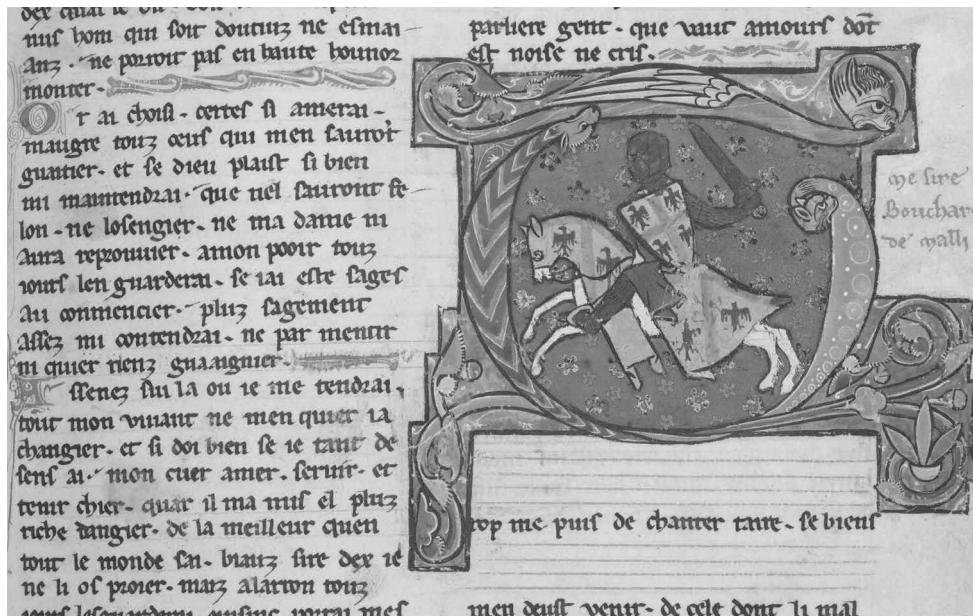 nus hom qui soit doutiuz ne esmai
anz · ne porroit pas en haute hounor
monter ·
Or ai choisi · certes si amerai ·
maugre touz ceus qui men sauront
guaitier · et se dieu plaist si bien
mi maintendrai · que nel sauront fe
lon · ne losengier · ne ma dame ni
aura reprouvier · a mon pooir touz
iours len guarderai · se iai este sages
au conmencier · pluz sagement
assez mi contendrai · ne par mentir
ni quier rienz guaaignier ·
Assenez sui la ou ie me tendrai ·
tout mon vivant ne men quier ia
changier · et si doi bien se ie tant de
sens ai · mon cuer amer · servir · et
tenir chier · quar il ma mis el pluz
riche dangier · de la meilleur quen
tout le monde sai · biauz sire dex ie
ne li os proier · maiz
parliere gent · que vaut amours dont
est noise ne cris ·
me sire
Bouchar
de malli
Trop me puis de chanter taire · se biens
men deust venir · de cele dont li mal